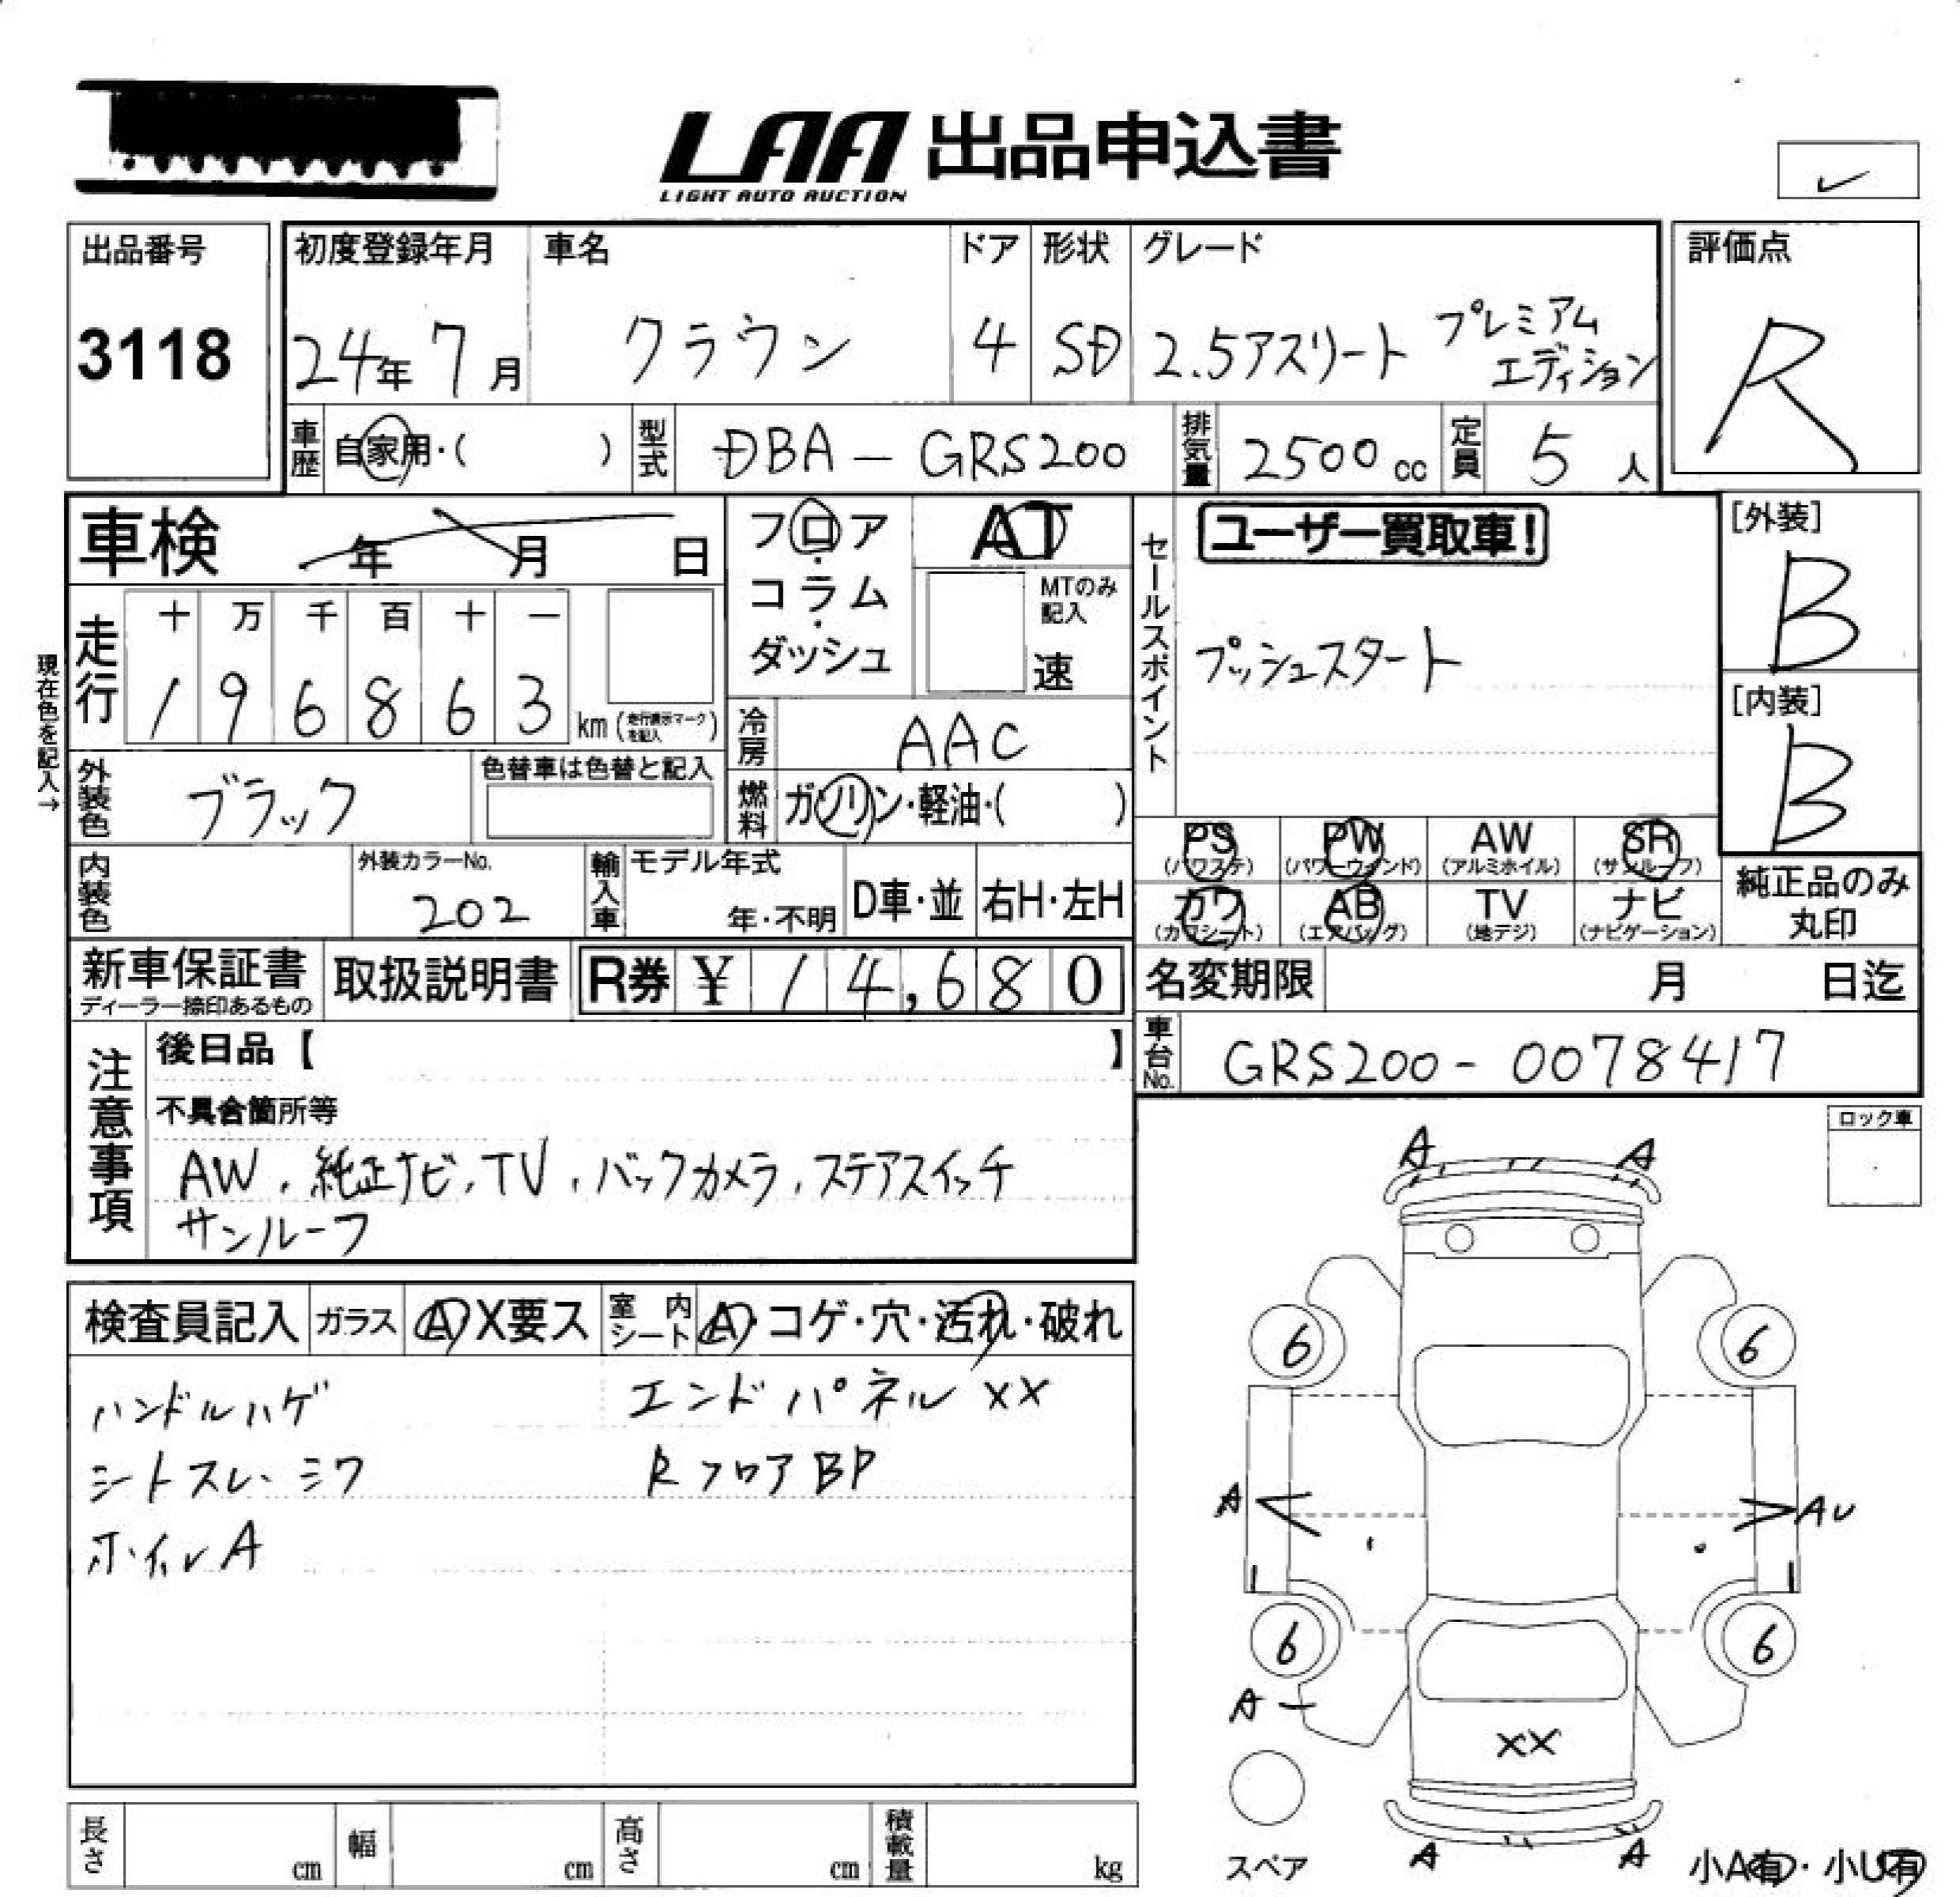 LAA 出品申込書
LIGHT AUTO AUCTION
出品番号
3118
初度登録年月
24年 7月
車名
クラウン
ドア
4
形状
SD
グレード
2.5アスリート プレミアム
エディション
評価点
R
車歴
自家用・( )
型式
DBA－GRS200
排気量
2500cc
定員
5人
車検 年 月 日
フロア
コラム
ダッシュ
AT
MTのみ
記入
速
セールスポイント
ユーザー買取車!
プッシュスタート
[外装]
B
[内装]
B
現在色を記入→
走行
十 万 千 百 十 一
1 9 6 8 6 3 km (走行表示マークを記入)
冷房
AAC
外装色
ブラック
色替車は色替と記入
燃料
ガソリン・軽油・( )
PS
(パワステ)
PW
(パワーウィンド)
AW
(アルミホイル)
SR
(サンルーフ)
カワ
(カワシート)
AB
(エアバッグ)
TV
(地デジ)
ナビ
(ナビゲーション)
純正品のみ
丸印
内装色
外装カラーNo.
202
輸入車
モデル年式
年・不明
D車・並
右H・左H
新車保証書
ディーラー捺印あるもの
取扱説明書
R券 ¥ 14,680
名変期限 月 日迄
車台No.
GRS200-0078417
注意事項
後日品【 】
不具合箇所等
AW、純正ナビ、TV、バックカメラ、ステアスイッチ
サンルーフ
ロック車
検査員記入
ガラス
A X要ス
室内シート
A・コゲ・穴・汚れ・破れ
ハンドルハゲ
エンドパネル XX
シートスレ・シワ
RフロアBP
ホイルA
A A
6 6
A AU
6 6
A
XX
スペア
A A
小A有・小U有
長さ cm
幅 cm
高さ cm
積載量 kg